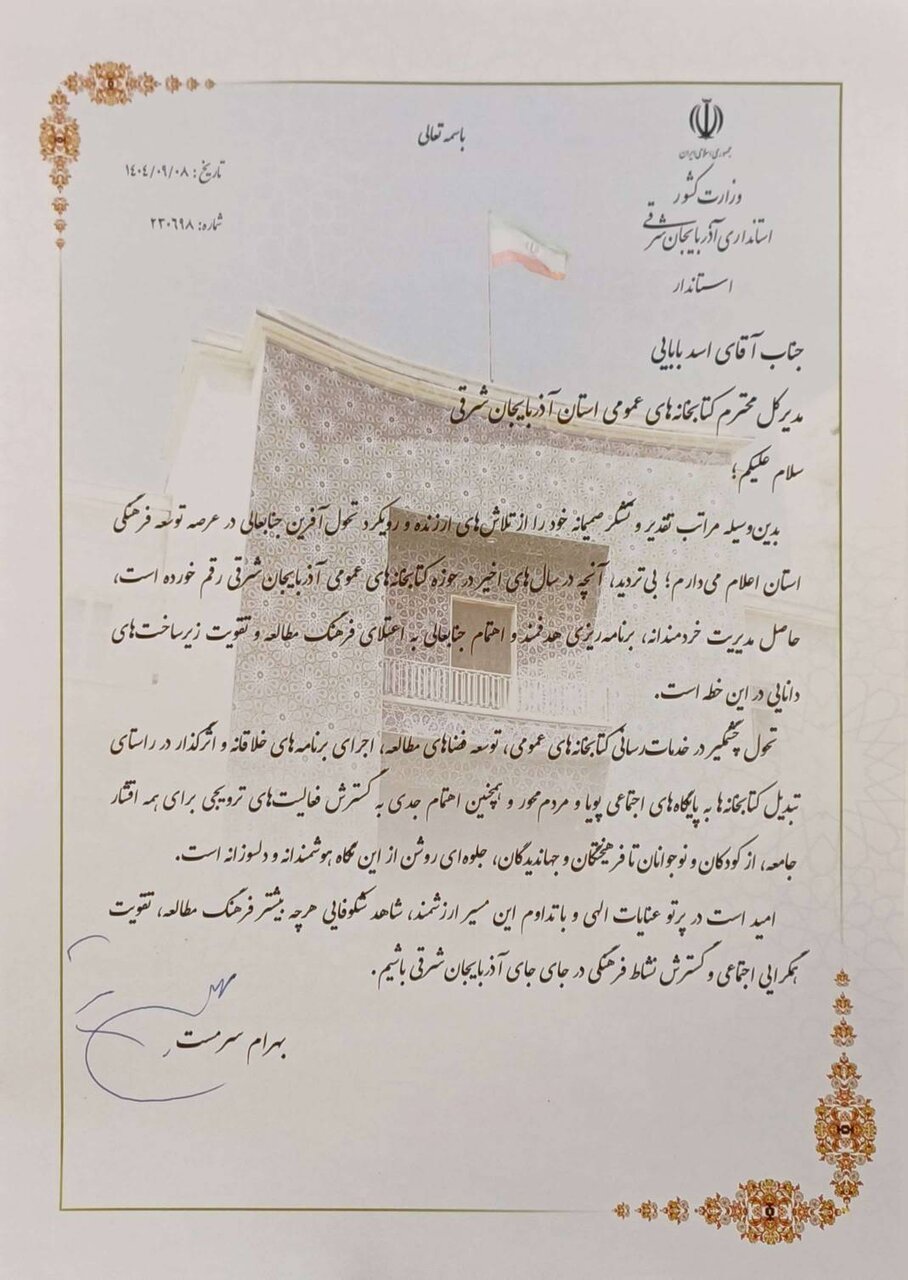 باسمه تعالی
جمهوری اسلامی ایران
وزارت کشور
استانداری آذربایجان شرقی
استاندار
تاریخ: ۱۴۰۴/۰۹/۰۸
شماره: ۲۳۰۶۹۸
جناب آقای اسد بابایی
مدیرکل محترم کتابخانه‌های عمومی استان آذربایجان شرقی
سلام علیکم؛
بدین‌وسیله مراتب تقدیر و تشکر صمیمانه خود را از تلاش‌های ارزنده و رویکرد تحول آفرین جنابعالی در عرصه توسعه فرهنگی
استان اعلام می‌دارم؛ بی‌تردید، آنچه در سال‌های اخیر در حوزه کتابخانه‌های عمومی آذربایجان شرقی رقم خورده است،
حاصل مدیریت خردمندانه، برنامه‌ریزی هدفمند و اهتمام جنابعالی به اعتلای فرهنگ مطالعه و تقویت زیرساخت‌های
دانایی در این خطه است.
تحول چشمگیر در خدمات‌رسانی کتابخانه‌های عمومی، توسعه فضاهای مطالعه، اجرای برنامه‌های خلاقانه و اثرگذار در راستای
تبدیل کتابخانه‌ها به پایگاه‌های اجتماعی پویا و مردم‌محور و همچنین اهتمام جدی به گسترش فعالیت‌های ترویجی برای همه اقشار
جامعه، از کودکان و نوجوانان تا فرهیختگان و جهاندیدگان، جلوه‌ای روشن از این نگاه هوشمندانه و دلسوزانه است.
امید است در پرتو عنایات الهی و با تداوم این مسیر ارزشمند، شاهد شکوفایی هرچه بیشتر فرهنگ مطالعه، تقویت
همگرایی اجتماعی و گسترش نشاط فرهنگی در جای جای آذربایجان شرقی باشیم.
بهرام سرمست